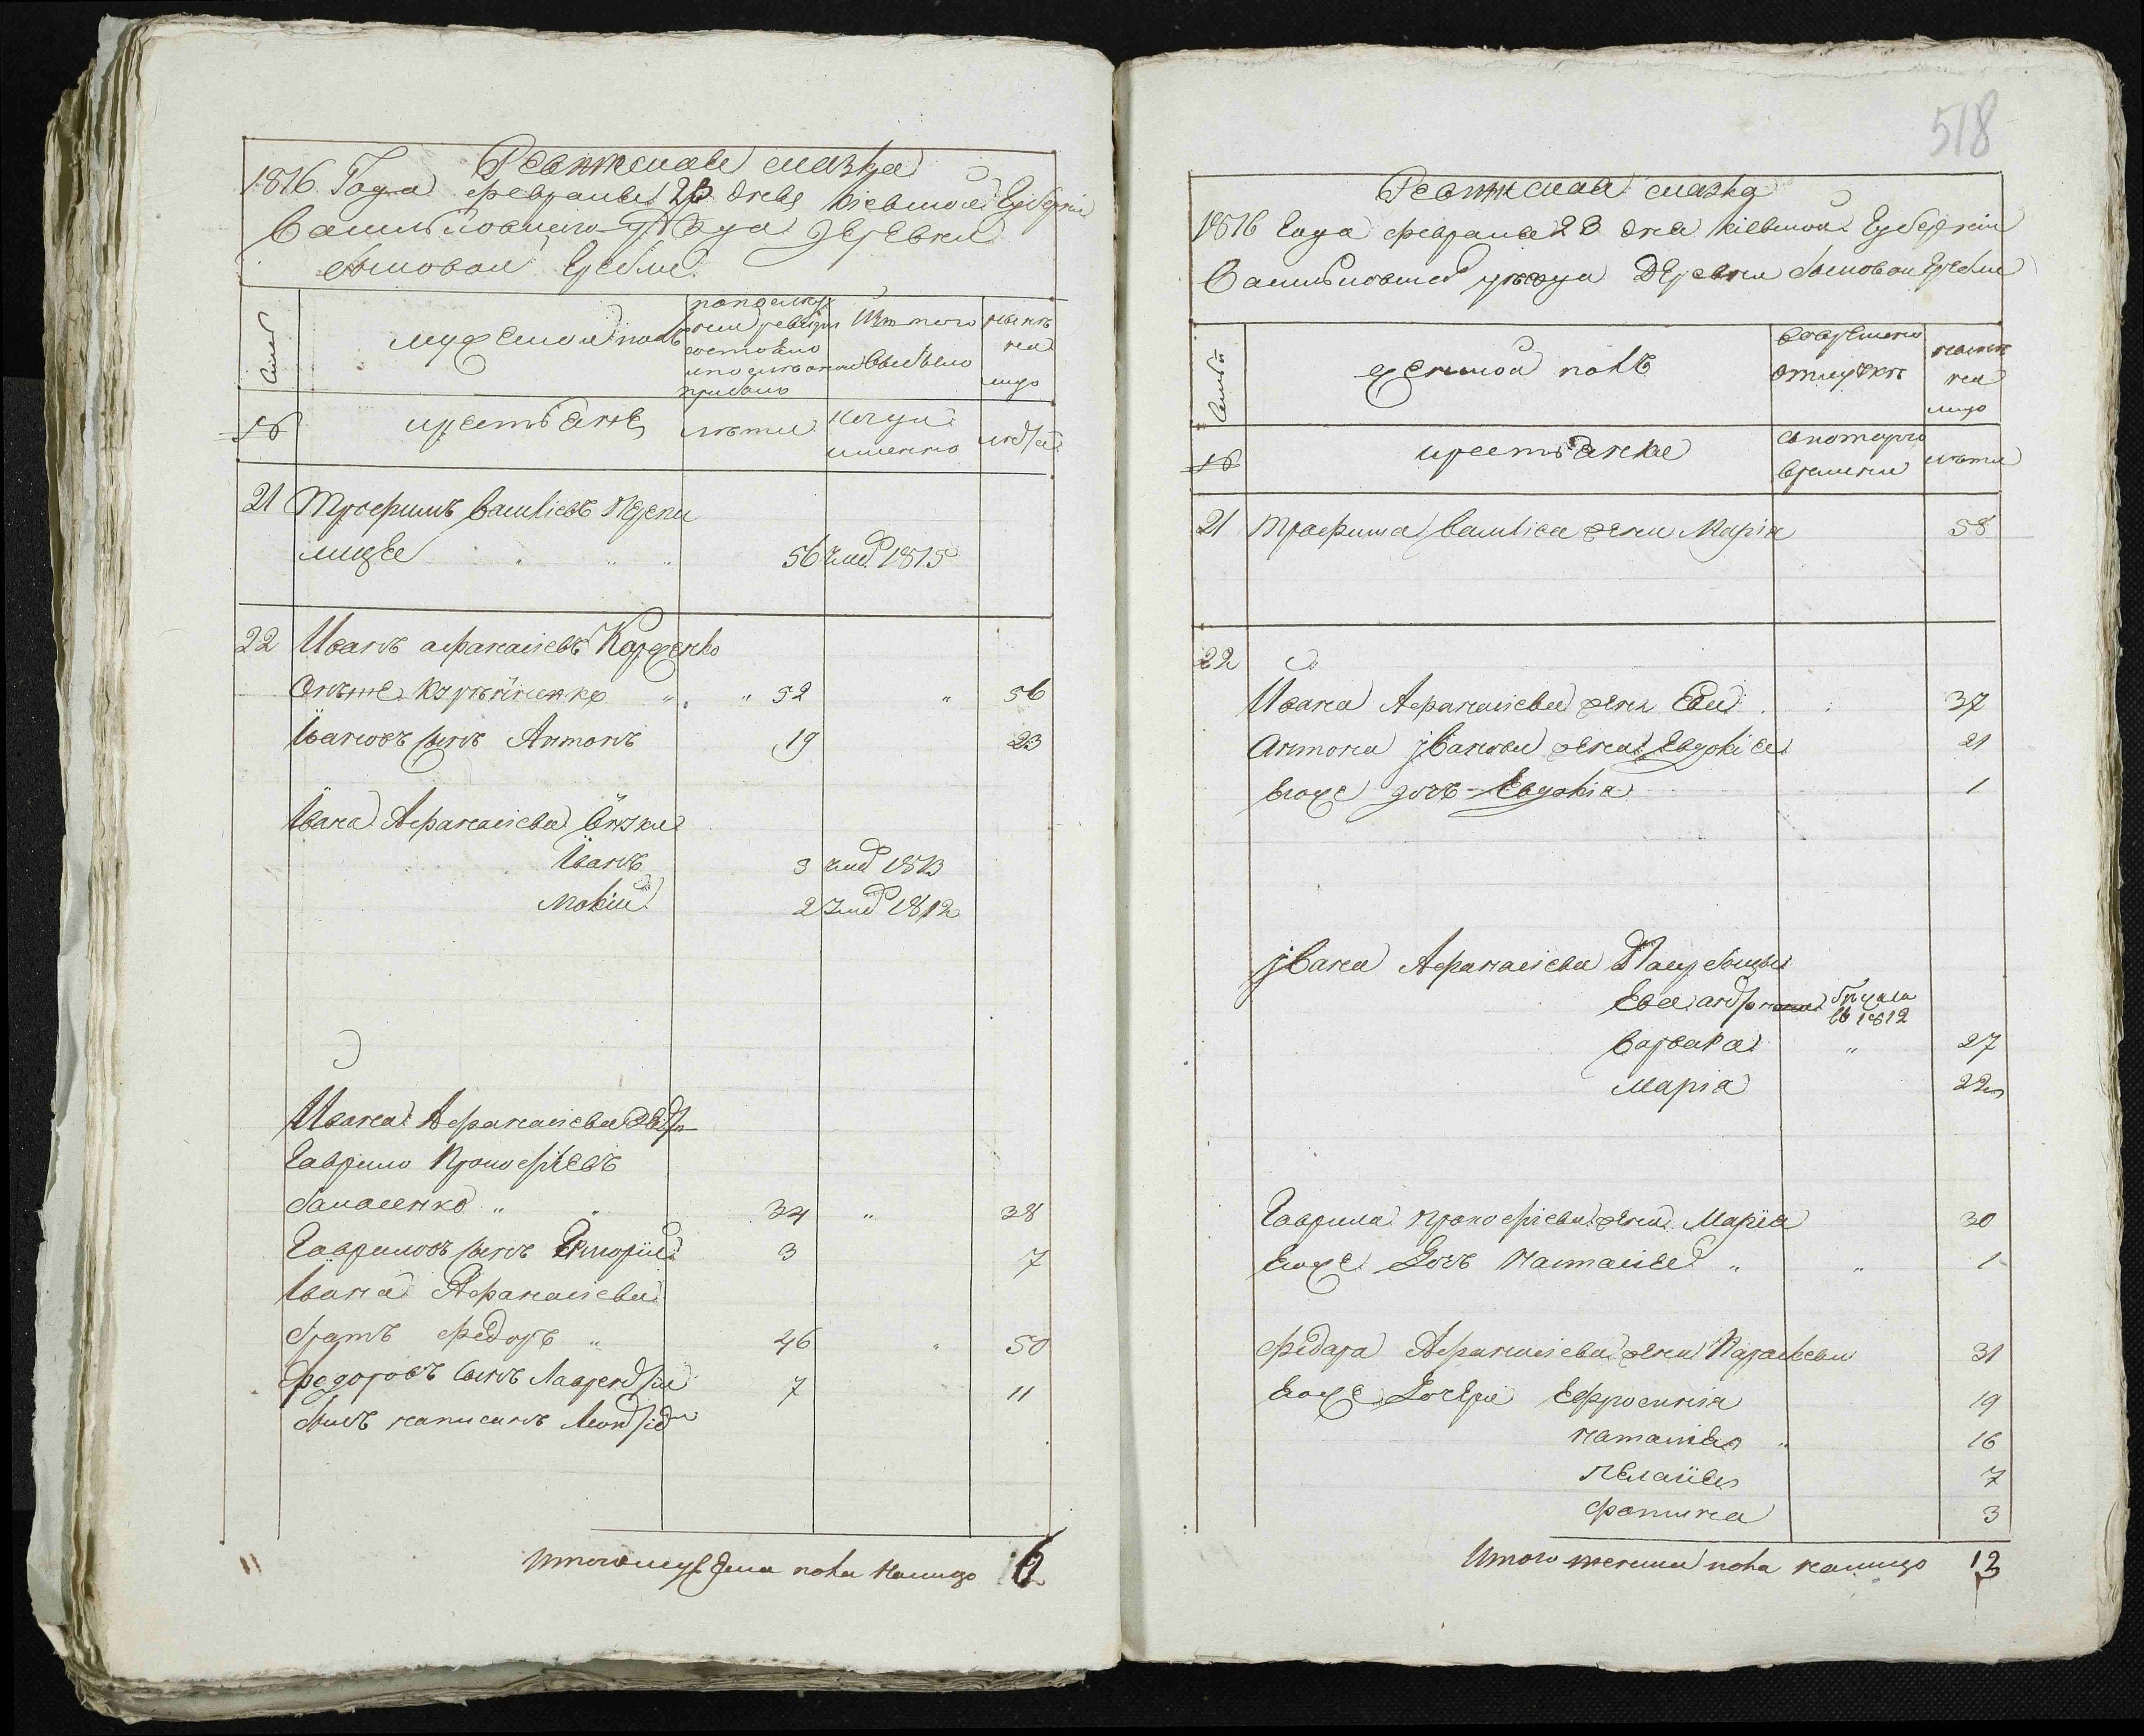 Ревижская сказка
1816 Года февраля 23 дня Киевской Губернiи
Васильковского уезда Деревни
Яцковой Гребли
Семьи
мужеской полъ
по последней ревизiи состояло и после оной прибыло
Изъ того выбыло
ныне на лицо
№
крестьяне
лета
когда именно
лета
21 Трофимъ Василiевъ Перепи
лица 56 умер 1815
22 Иванъ Афанасiевъ Корженко
52 56
Ивановъ сынъ Антонъ 19 23
Ивана Афанасiева внуки
Иванъ 3 умер 1813
Мокiй 2 умер 1812
Ивана Афанасiева зять
Гаврило Прокофiевъ
34 38
Гавриловъ сынъ Григорiй 3 7
Ивана Афанасiева
братъ Федоръ 46 50
Федоровъ сынъ Лаврентiй 7 11
написанъ Леонтiй
Итого мужеска пола налицо 6
518
Ревижская сказка
1816 Года февраля 23 дня Киевской Губернiи
Васильковского уезда Деревни Яцковой Гребли
Семьи
женской полъ
во временной отлучке
ныне на лицо
№
крестьянки
с котораго времени
лета
21 Трофима Василiева жена Марiя 58
22
Ивана Афанасiева жена Ева 37
Антона Иванова жена Евдокiя 21
Егоже дочъ Евдокiя 1
Ивана Афанасiева Падчерицы
Ева в 1812
Варвара " 27
Марiя 22
Гаврила Прокофiева жена Марiя 30
Егоже Дочъ Наталiя " " 1
Федора Афанасiева жена Параскева 31
Егоже Дочери Ефросинiя 19
Наталiя " 16
Пелагiя 7
Фотина 3
Итого женска пола налицо 13